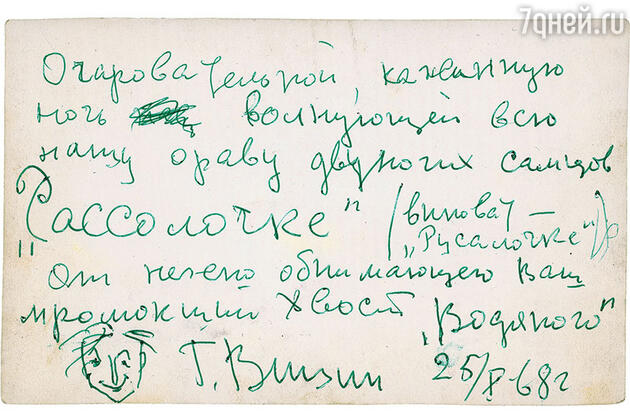 7дней.ru
Очаровательной, каждую
ночь волнующей всю
нашу ораву двуногих самцов
"Рассолочке" (виноват —
"Русалочке")
от нежно обнимающего Ваш
промокший хвост "Водяного"
Г. Вицин 25/X 68 г